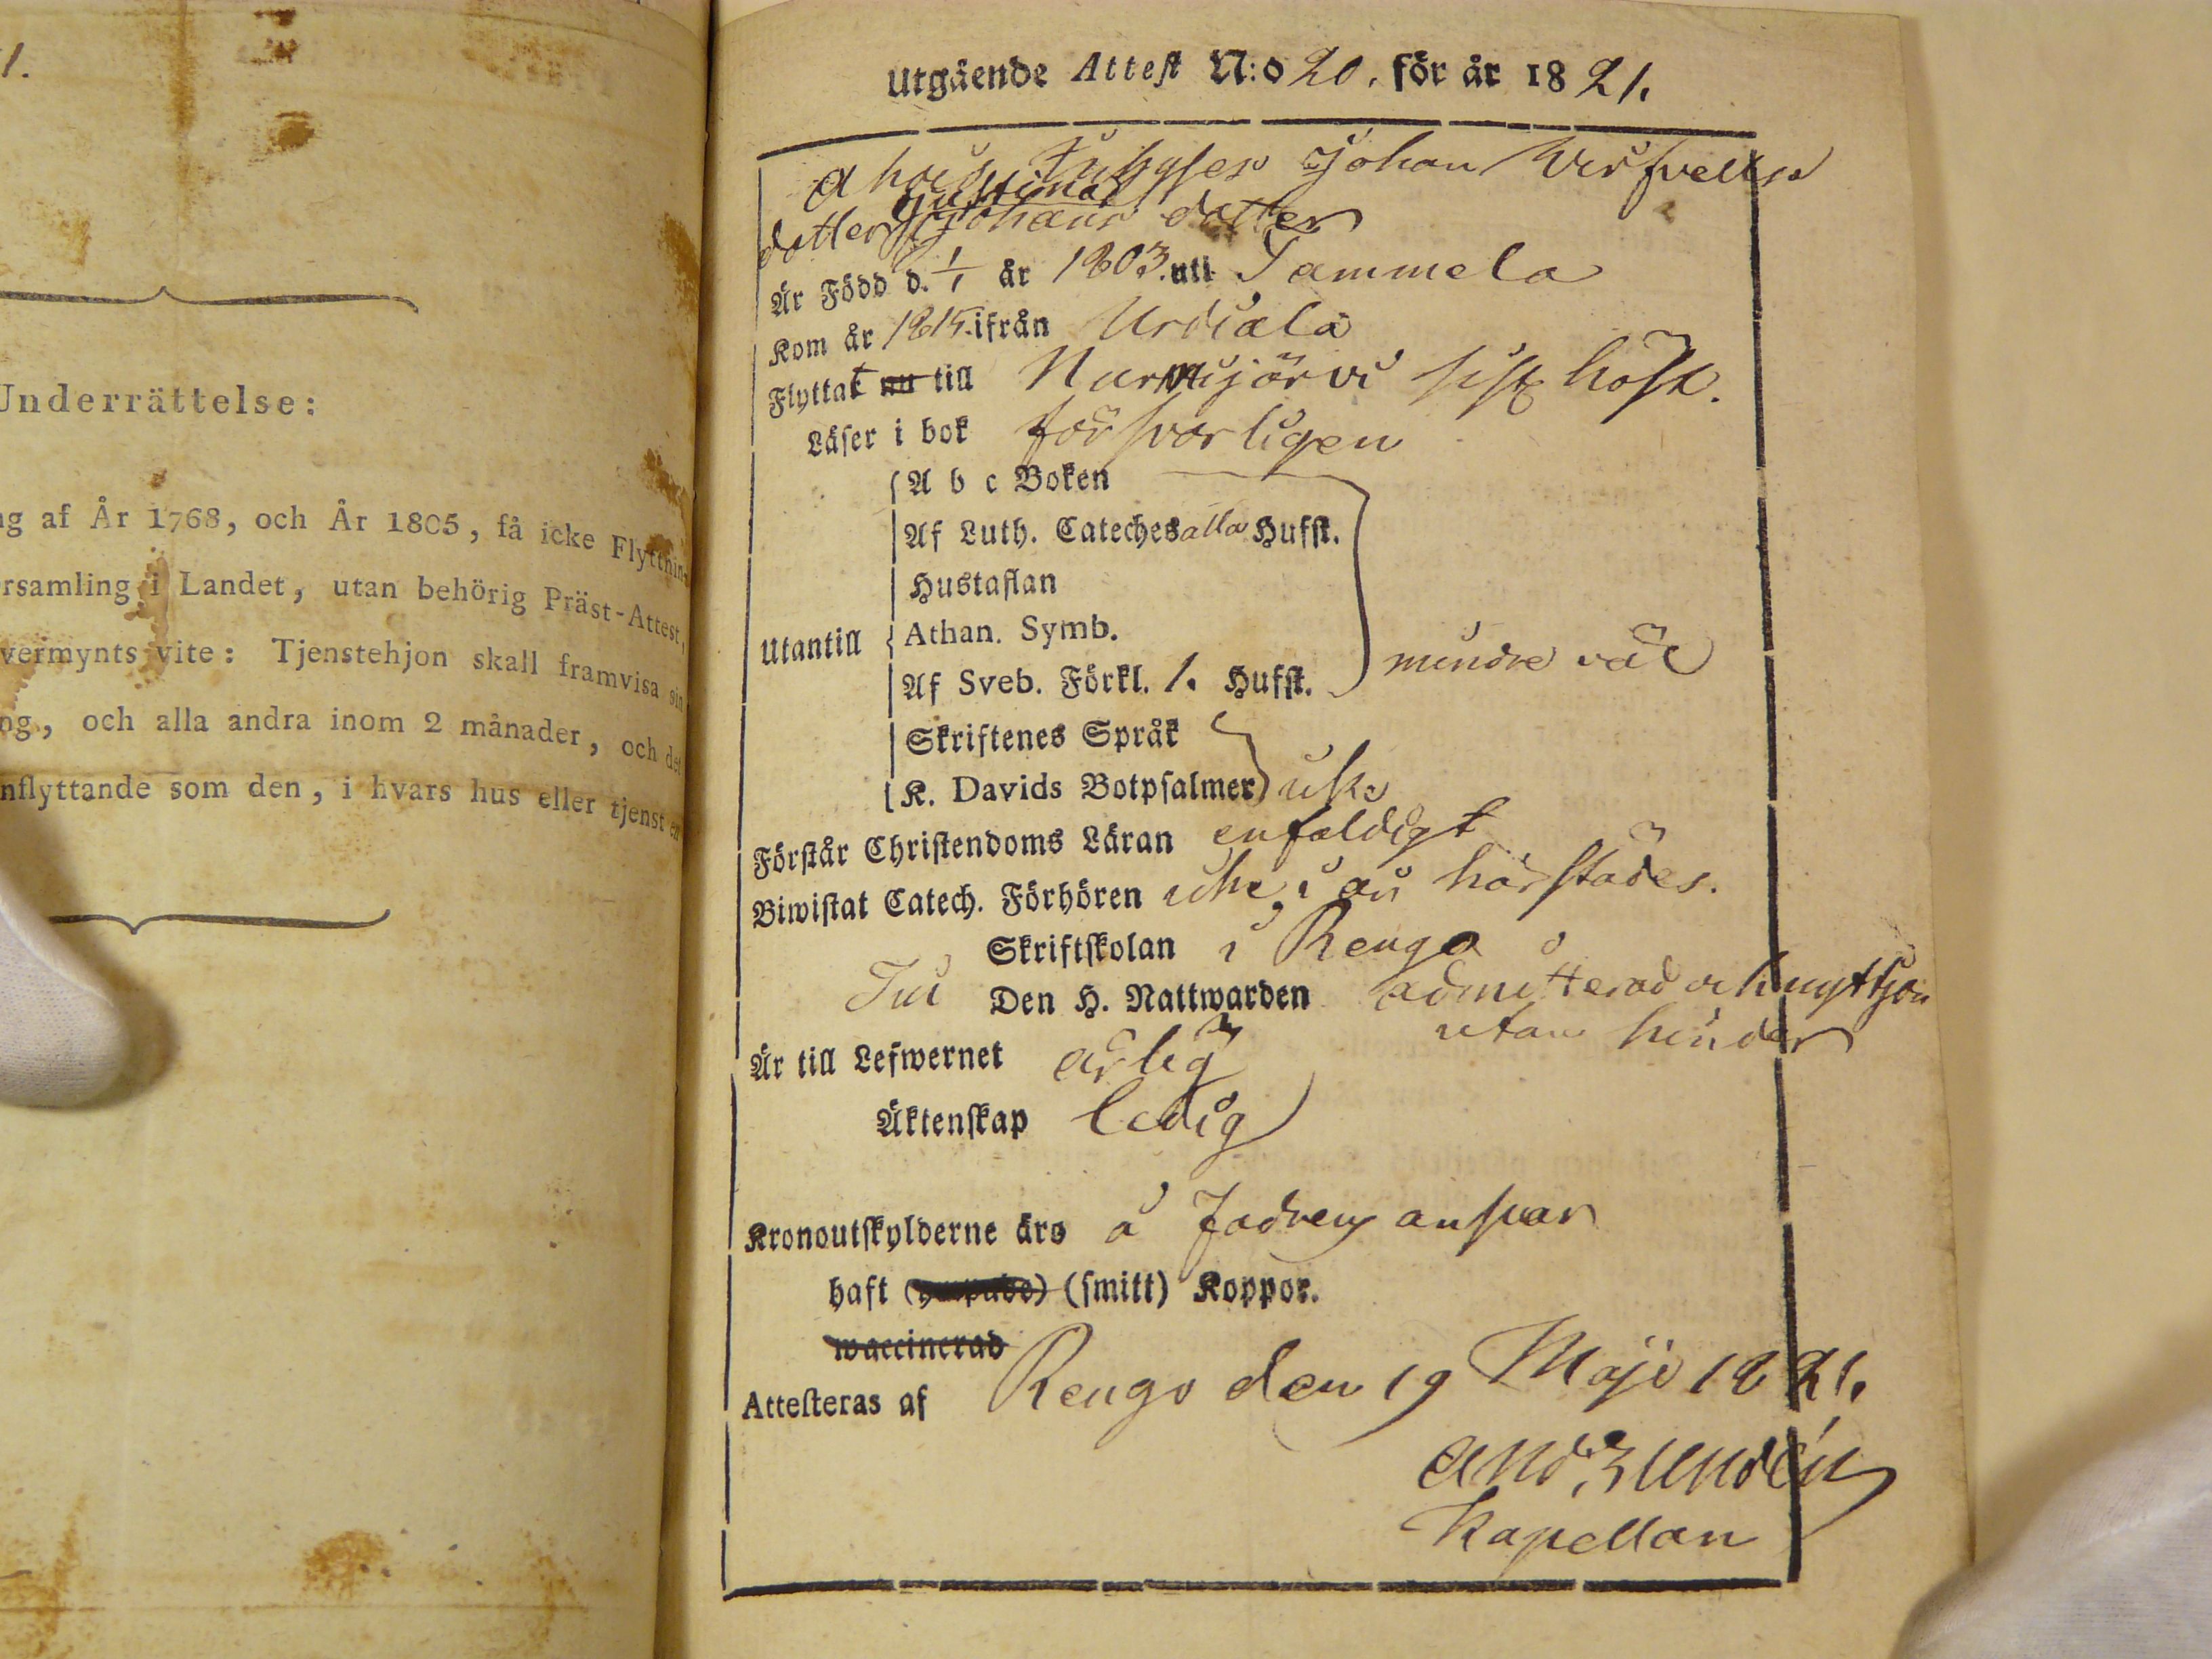 1.
Underrättelse:
ng af År 1768, och År 1805, få icke Flyttnin-
rsamling i Landet, utan behörig Präst-Attest,
vermynts vite: Tjenstehjon skall framvisa sin
og, och alla andra inom 2 månader, och det
nflyttande som den, i hvars hus eller tjenst en
Utgående Attest N:o 20. för år 1821.
Johan
Justina
dotter Johans dotter
Är Född d. 1/1 år 1803. uti Tammela
Kom år 1815. ifrån Urdiala
Flyttat nu till Nurmijärvi sist höst.
Läser i bok försvarligen
A b c Boken
Af Luth. Cateches alla Hufst.
Hustaflan
Utantill Athan. Symb.
mindre väl
Af Sveb. Förkl. 1. Hufst.
Skriftenes Språk
K. Davids Botpsalmer icke
Förstår Christendoms Läran enfaldigt
Biwistat Catech. Förhören icke i år härstädes.
Skriftskolan i Rengo
Till Den H. Nattwarden admitterad och
utan hinder
Är till Lefwernet ärlig
Äktenskap ledig
Kronoutskylderne äro å Fadrens ansvar
haft (smitt) Koppor.
waccinerad
Attesteras af Rengo den 19 Maji 1821.
Kapellan